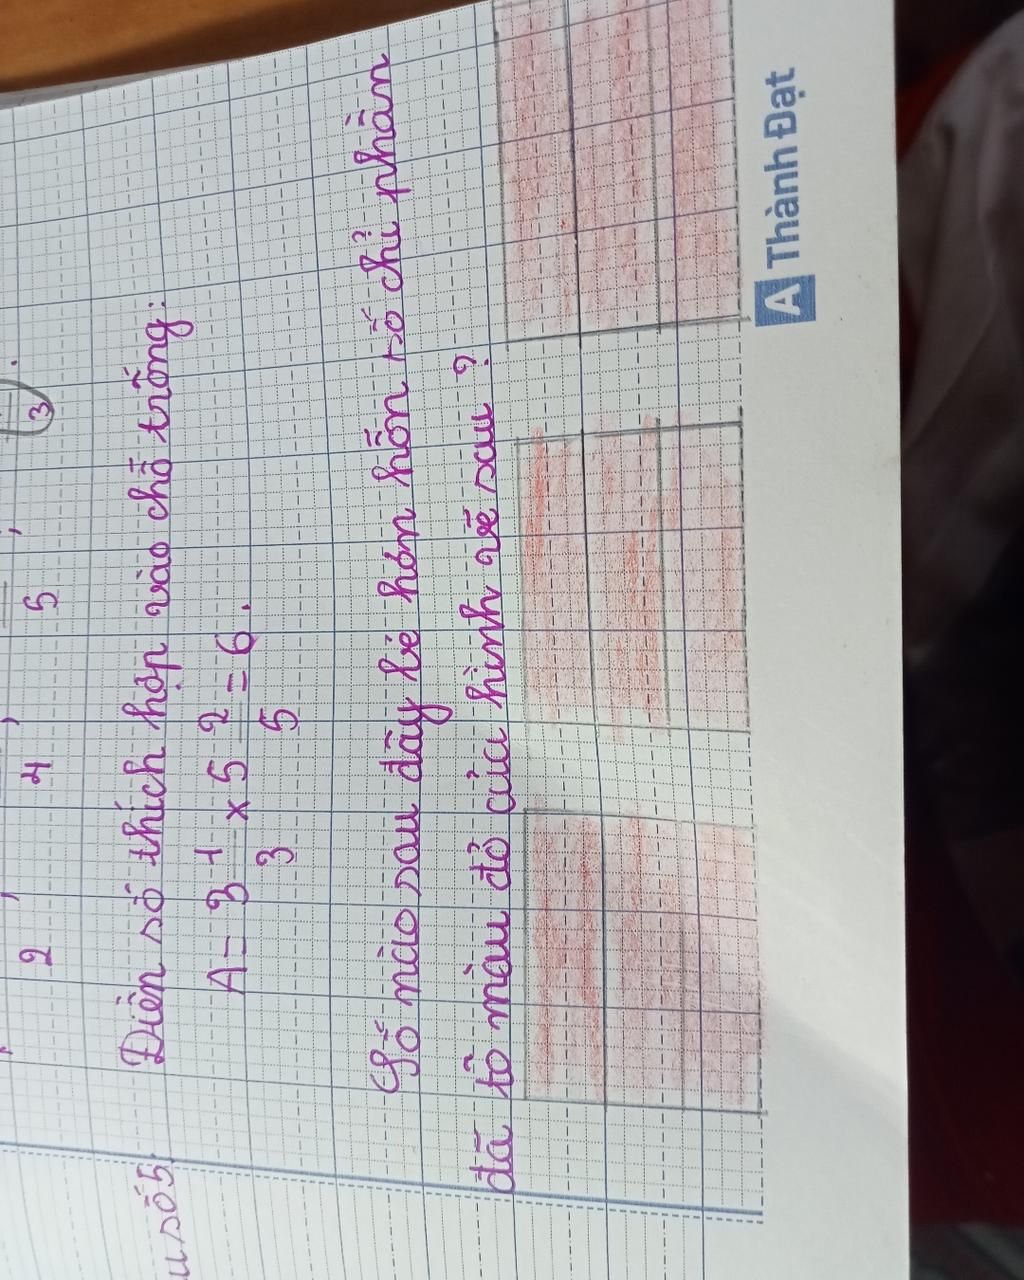 2 4 5 3
u số 5:
Điền số thích hợp vào chỗ trống:
A = 3 1/3 x 5 2/5 = 6.
Số nào sau đây bé hơn hỗn số chỉ phần
đã tô màu đỏ của hình vẽ sau ?
A Thành Đạt